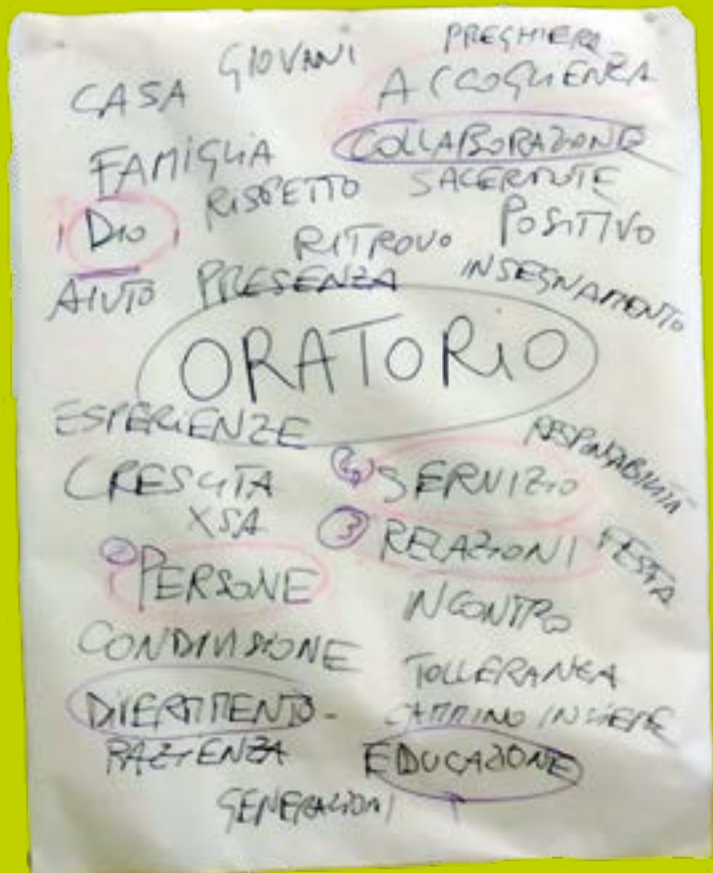 GIOVANI PREGHIERA
CASA ACCOGLIENZA
FAMIGLIA COLLABORAZIONE
RISPETTO SACERDOTE
DIO RITROVO POSITIVO
AIUTO PRESENZA INSEGNAMENTO
ORATORIO
ESPERIENZE RESPONSABILITÀ
CRESCITA 4 SERVIZIO
XSA 3 RELAZIONI FESTA
2 PERSONE INCONTRO
CONDIVISIONE TOLLERANZA
DIVERTIMENTO - CAMMINO INSIEME
PAZIENZA EDUCAZIONE
GENERAZIONI